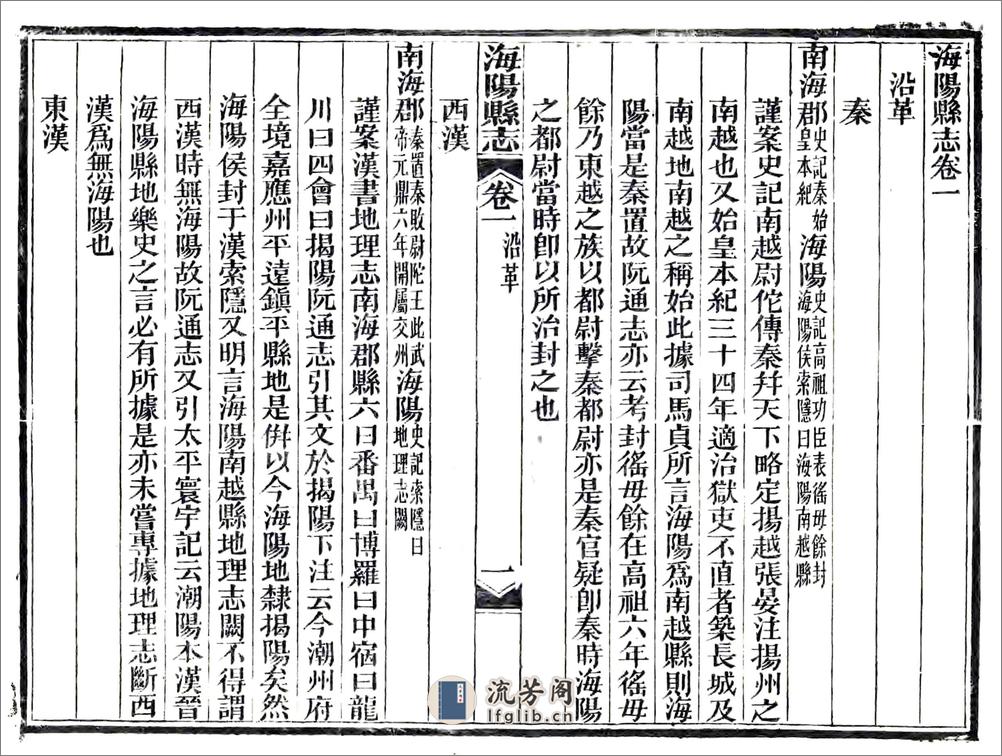 海陽縣志卷一
沿革
秦
南海郡史記秦始皇本紀海陽史記高祖功臣表徭毋餘封海陽侯索隱曰海陽南越縣
謹案史記南越尉佗傳秦幷天下略定揚越張晏注揚州之
南越也又始皇本紀三十四年適治獄吏不直者築長城及
南越地南越之稱始此據司馬貞所言海陽爲南越縣則海
陽當是秦置故阮通志亦云考封徭毋餘在高祖六年徭毋
餘乃東越之族以都尉擊秦都尉亦是秦官疑卽秦時海陽
之都尉當時卽以所治封之也
海陽縣志
卷一 沿革
一
西漢
南海郡秦置秦敗尉陀王此武帝元鼎六年開屬交州海陽史記索隱曰地理志闕
謹案漢書地理志南海郡縣六曰番禺曰博羅曰中宿曰龍
川曰四會曰揭陽阮通志引其文於揭陽下注云今潮州府
全境嘉應州平遠鎮平縣地是倂以今海陽地隸揭陽矣然
海陽侯封于漢索隱又明言海陽南越縣地理志闕不得謂
西漢時無海陽故阮通志又引太平寰宇記云潮陽本漢晉
海陽縣地樂史之言必有所據是亦未嘗專據地理志斷西
漢爲無海陽也
東漢
流芳阁
lfglib.cn